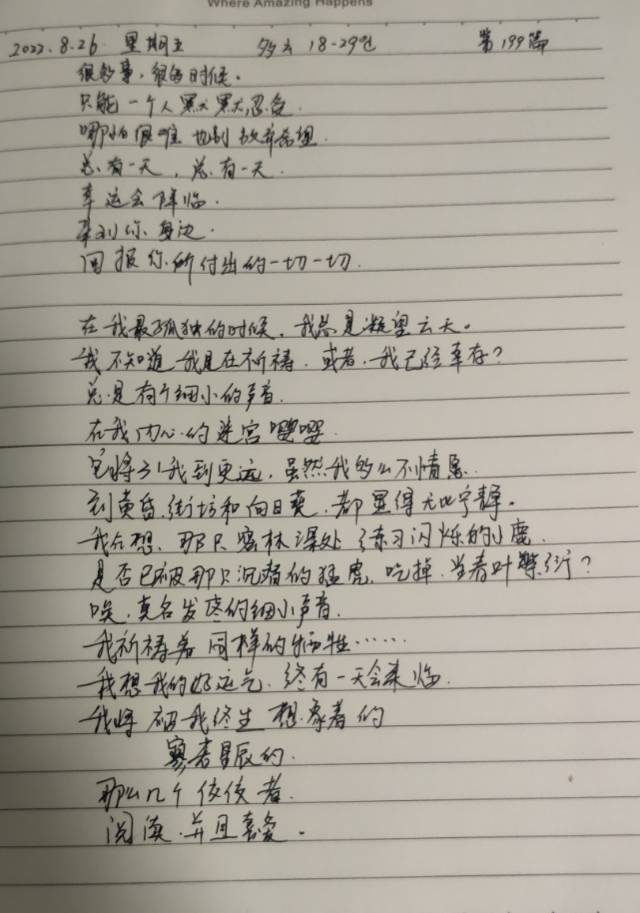 Where Amazing Happens
2022.8.26 星期五 多云 18-29℃ 第199篇
很多事,很多时候。
只能一个人默默忍受.
哪怕很难 也别放弃希望.
总有一天,总有一天.
幸运会降临.
来到你身边.
回报你所付出的一切一切.
在我最孤独的时候,我总是凝望云天。
我不知道我是在祈祷.或者,我已经幸存?
总是有个细小的声音.
在我内心的迷宫嘤嘤.
它将引我到更远,虽然我多么不情愿.
到黄昏,街坊和向日葵,都显得无比宁静。
我在想,那只密林深处练习闪烁的小鹿.
是否已被那只沉潜的猛虎,吃掉.当春叶繁衍?
唉,莫名发疼的细小声音.
我祈祷着同样的牺牲……
我想我的好运气.终有一天会来临.
我将被我终生想象着的
寥若星辰的.
那么几个佼佼者.
阅读.并且喜爱。